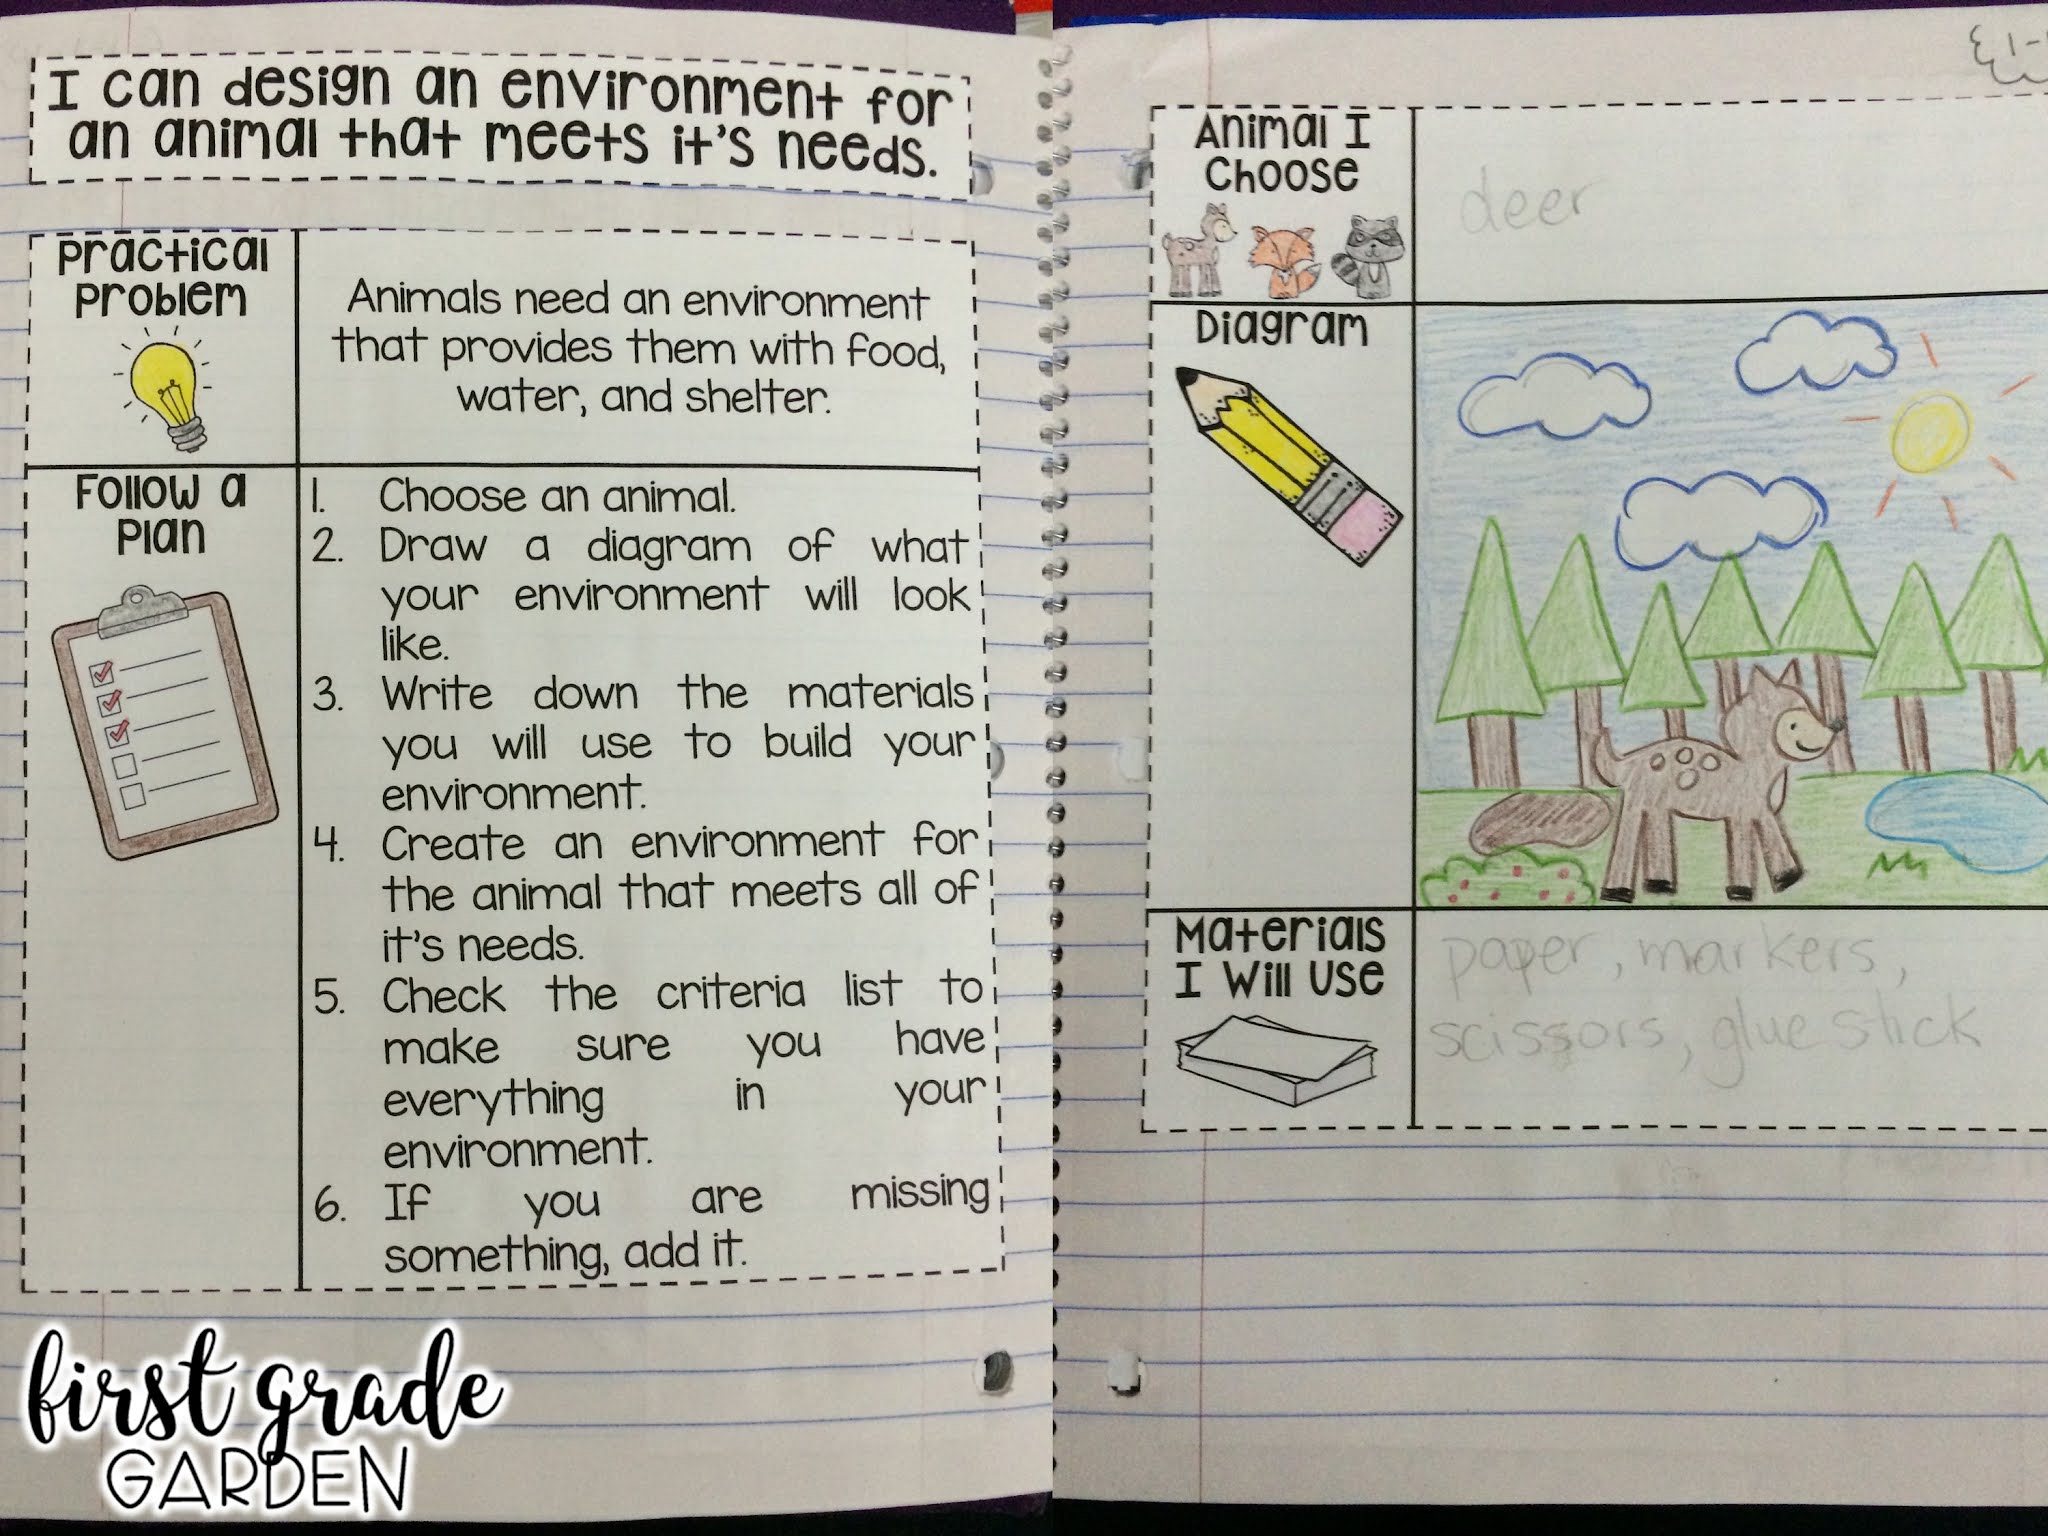 I can design an environment for
an animal that meets it's needs.
Practical
Problem
Animals need an environment
that provides them with food,
water, and shelter.
Follow a
Plan
1. Choose an animal.
2. Draw a diagram of what
your environment will look
like.
3. Write down the materials
you will use to build your
environment.
4. Create an environment for
the animal that meets all of
it's needs.
5. Check the criteria list to
make sure you have
everything in your
environment.
6. If you are missing
something, add it.
first grade
GARDEN
Animal I
Choose
deer
Diagram
Materials
I Will Use
paper, markers,
scissors, glue stick